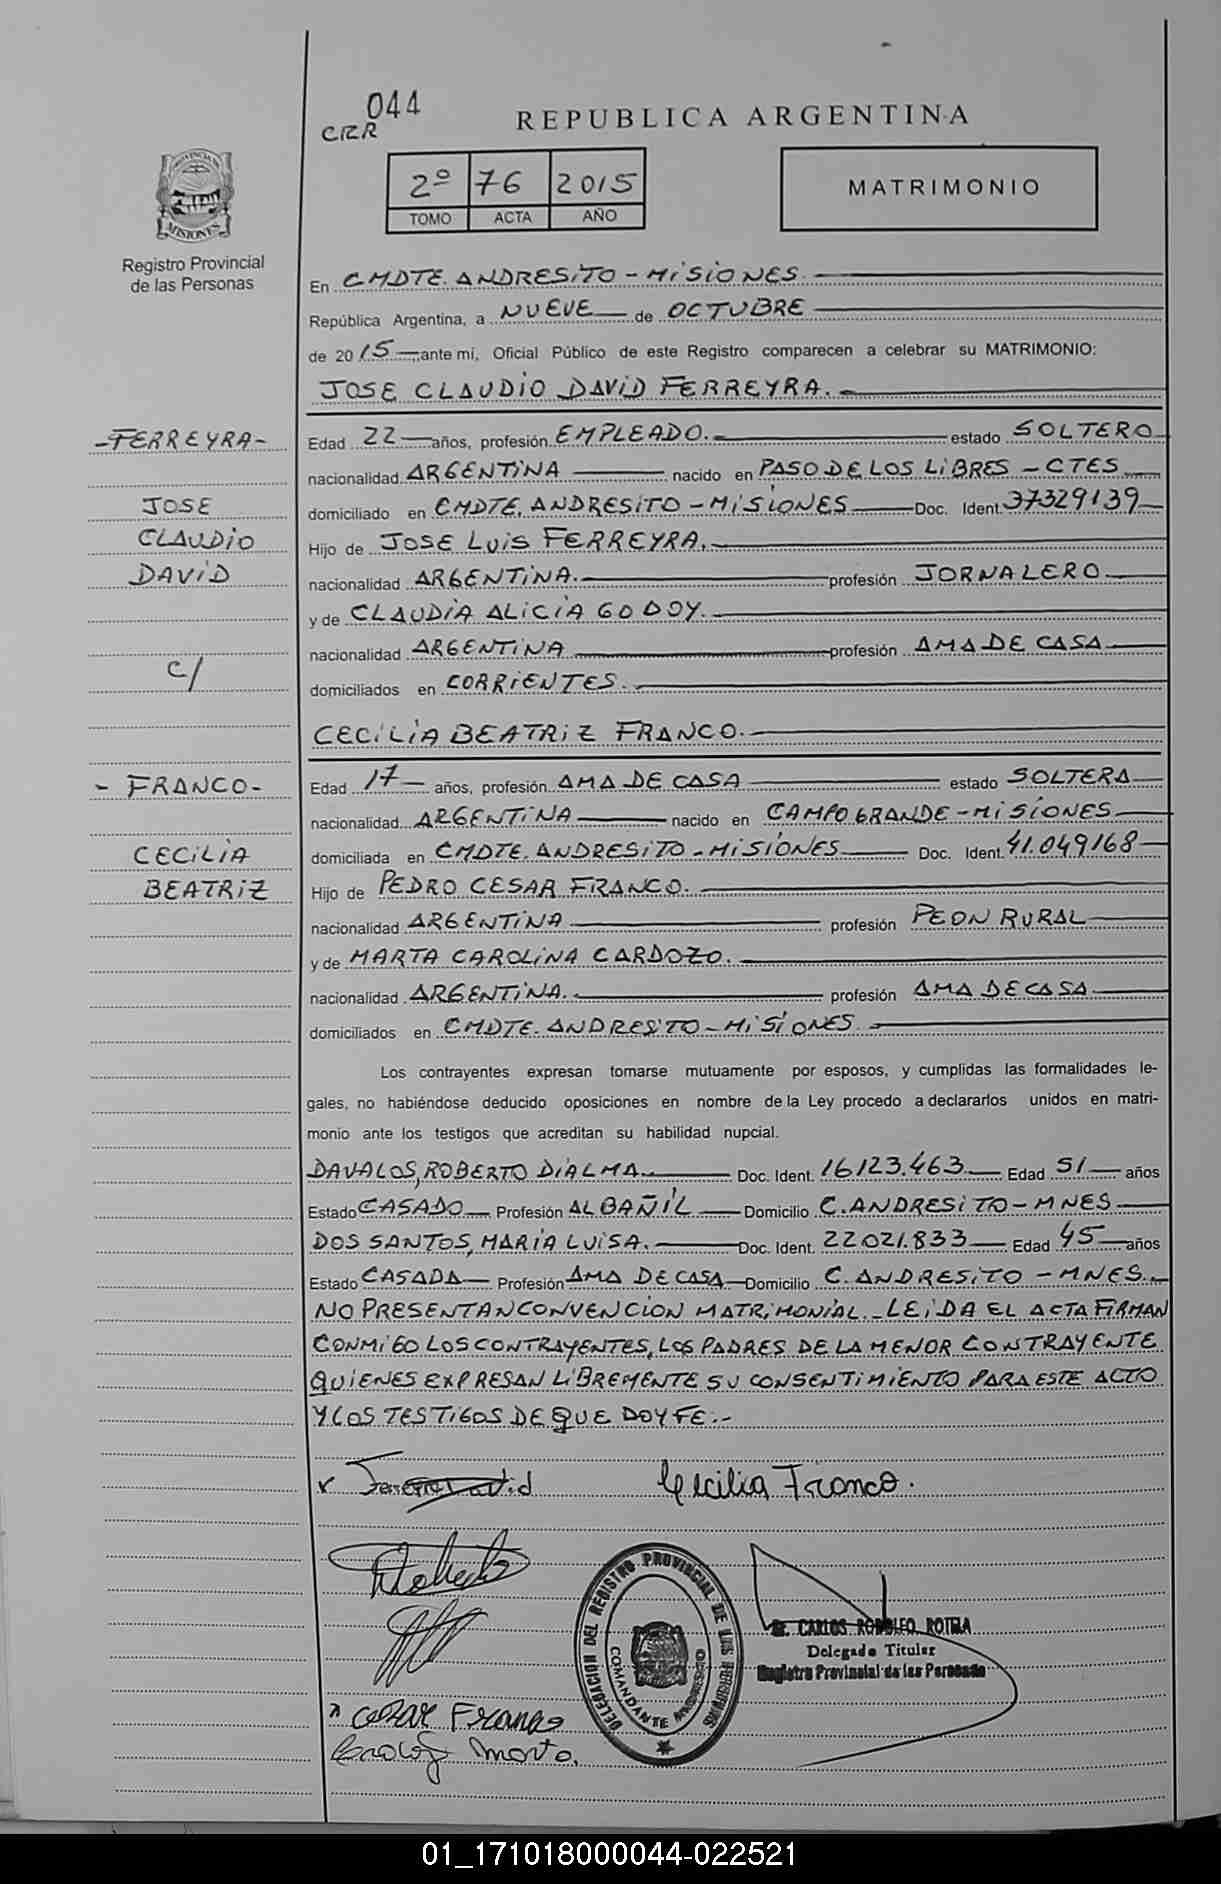 044
CRR
REPUBLICA ARGENTINA
2º 76 2015
TOMO ACTA AÑO
MATRIMONIO
PROVINCIA DE
MISIONES
Registro Provincial
de las Personas
En CMDTE. ANDRESITO - MISIONES.
República Argentina, a NUEVE de OCTUBRE
de 2015 ante mí, Oficial Público de este Registro comparecen a celebrar su MATRIMONIO:
JOSE CLAUDIO DAVID FERREYRA.
- FERREYRA -
JOSE
CLAUDIO
DAVID
C/
- FRANCO -
CECILIA
BEATRIZ
Edad 22 años, profesión EMPLEADO. estado SOLTERO
nacionalidad ARGENTINA nacido en PASO DE LOS LIBRES - CTES
domiciliado en CMDTE. ANDRESITO - MISIONES Doc. Ident. 37329139
Hijo de JOSE LUIS FERREYRA.
nacionalidad ARGENTINA. profesión JORNALERO
y de CLAUDIA ALICIA GODOY.
nacionalidad ARGENTINA profesión AMA DE CASA
domiciliados en CORRIENTES.
CECILIA BEATRIZ FRANCO.
Edad 17 años, profesión AMA DE CASA estado SOLTERA
nacionalidad ARGENTINA nacido en CAMPO GRANDE - MISIONES
domiciliada en CMDTE. ANDRESITO - MISIONES Doc. Ident. 41.049168
Hijo de PEDRO CESAR FRANCO.
nacionalidad ARGENTINA profesión PEON RURAL
y de MARTA CAROLINA CARDOZO.
nacionalidad ARGENTINA. profesión AMA DE CASA
domiciliados en CMDTE. ANDRESITO - MISIONES.
Los contrayentes expresan tomarse mutuamente por esposos, y cumplidas las formalidades le-
gales, no habiéndose deducido oposiciones en nombre de la Ley procedo a declararlos unidos en matri-
monio ante los testigos que acreditan su habilidad nupcial.
DAVALOS, ROBERTO DIALMA. Doc. Ident. 16123.463 Edad 51 años
Estado CASADO Profesión ALBAÑIL Domicilio C. ANDRESITO - MNES
DOS SANTOS, MARIA LUISA. Doc. Ident. 22021.833 Edad 45 años
Estado CASADA Profesión AMA DE CASA Domicilio C. ANDRESITO - MNES.
NO PRESENTAN CONVENCION MATRIMONIAL.- LEIDA EL ACTA FIRMAN
CONMIGO LOS CONTRAYENTES, LOS PADRES DE LA MENOR CONTRAYENTE
QUIENES EXPRESAN LIBREMENTE SU CONSENTIMIENTO PARA ESTE ACTO
Y LOS TESTIGOS DE QUE DOY FE.-
Cecilia Franco.
DELEGACION DEL REGISTRO PROVINCIAL DE LAS PERSONAS
COMANDANTE ANDRESITO
CARLOS RODOLFO ROTELA
Delegado Titular
Registro Provincial de las Personas
CESAR Franco
01_171018000044-022521